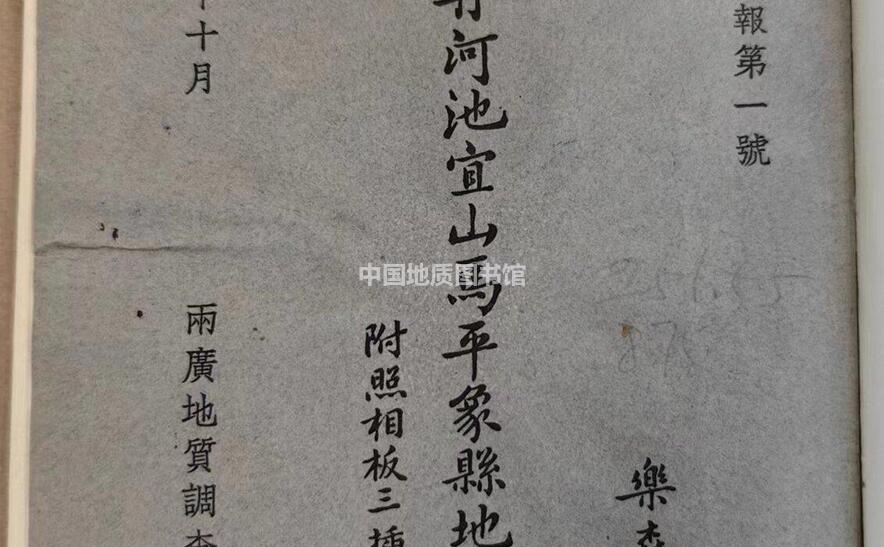 報第一號
河池宜山馬平象縣地
附照相板三
樂森
十月
兩廣地質調查
中国地质图书馆